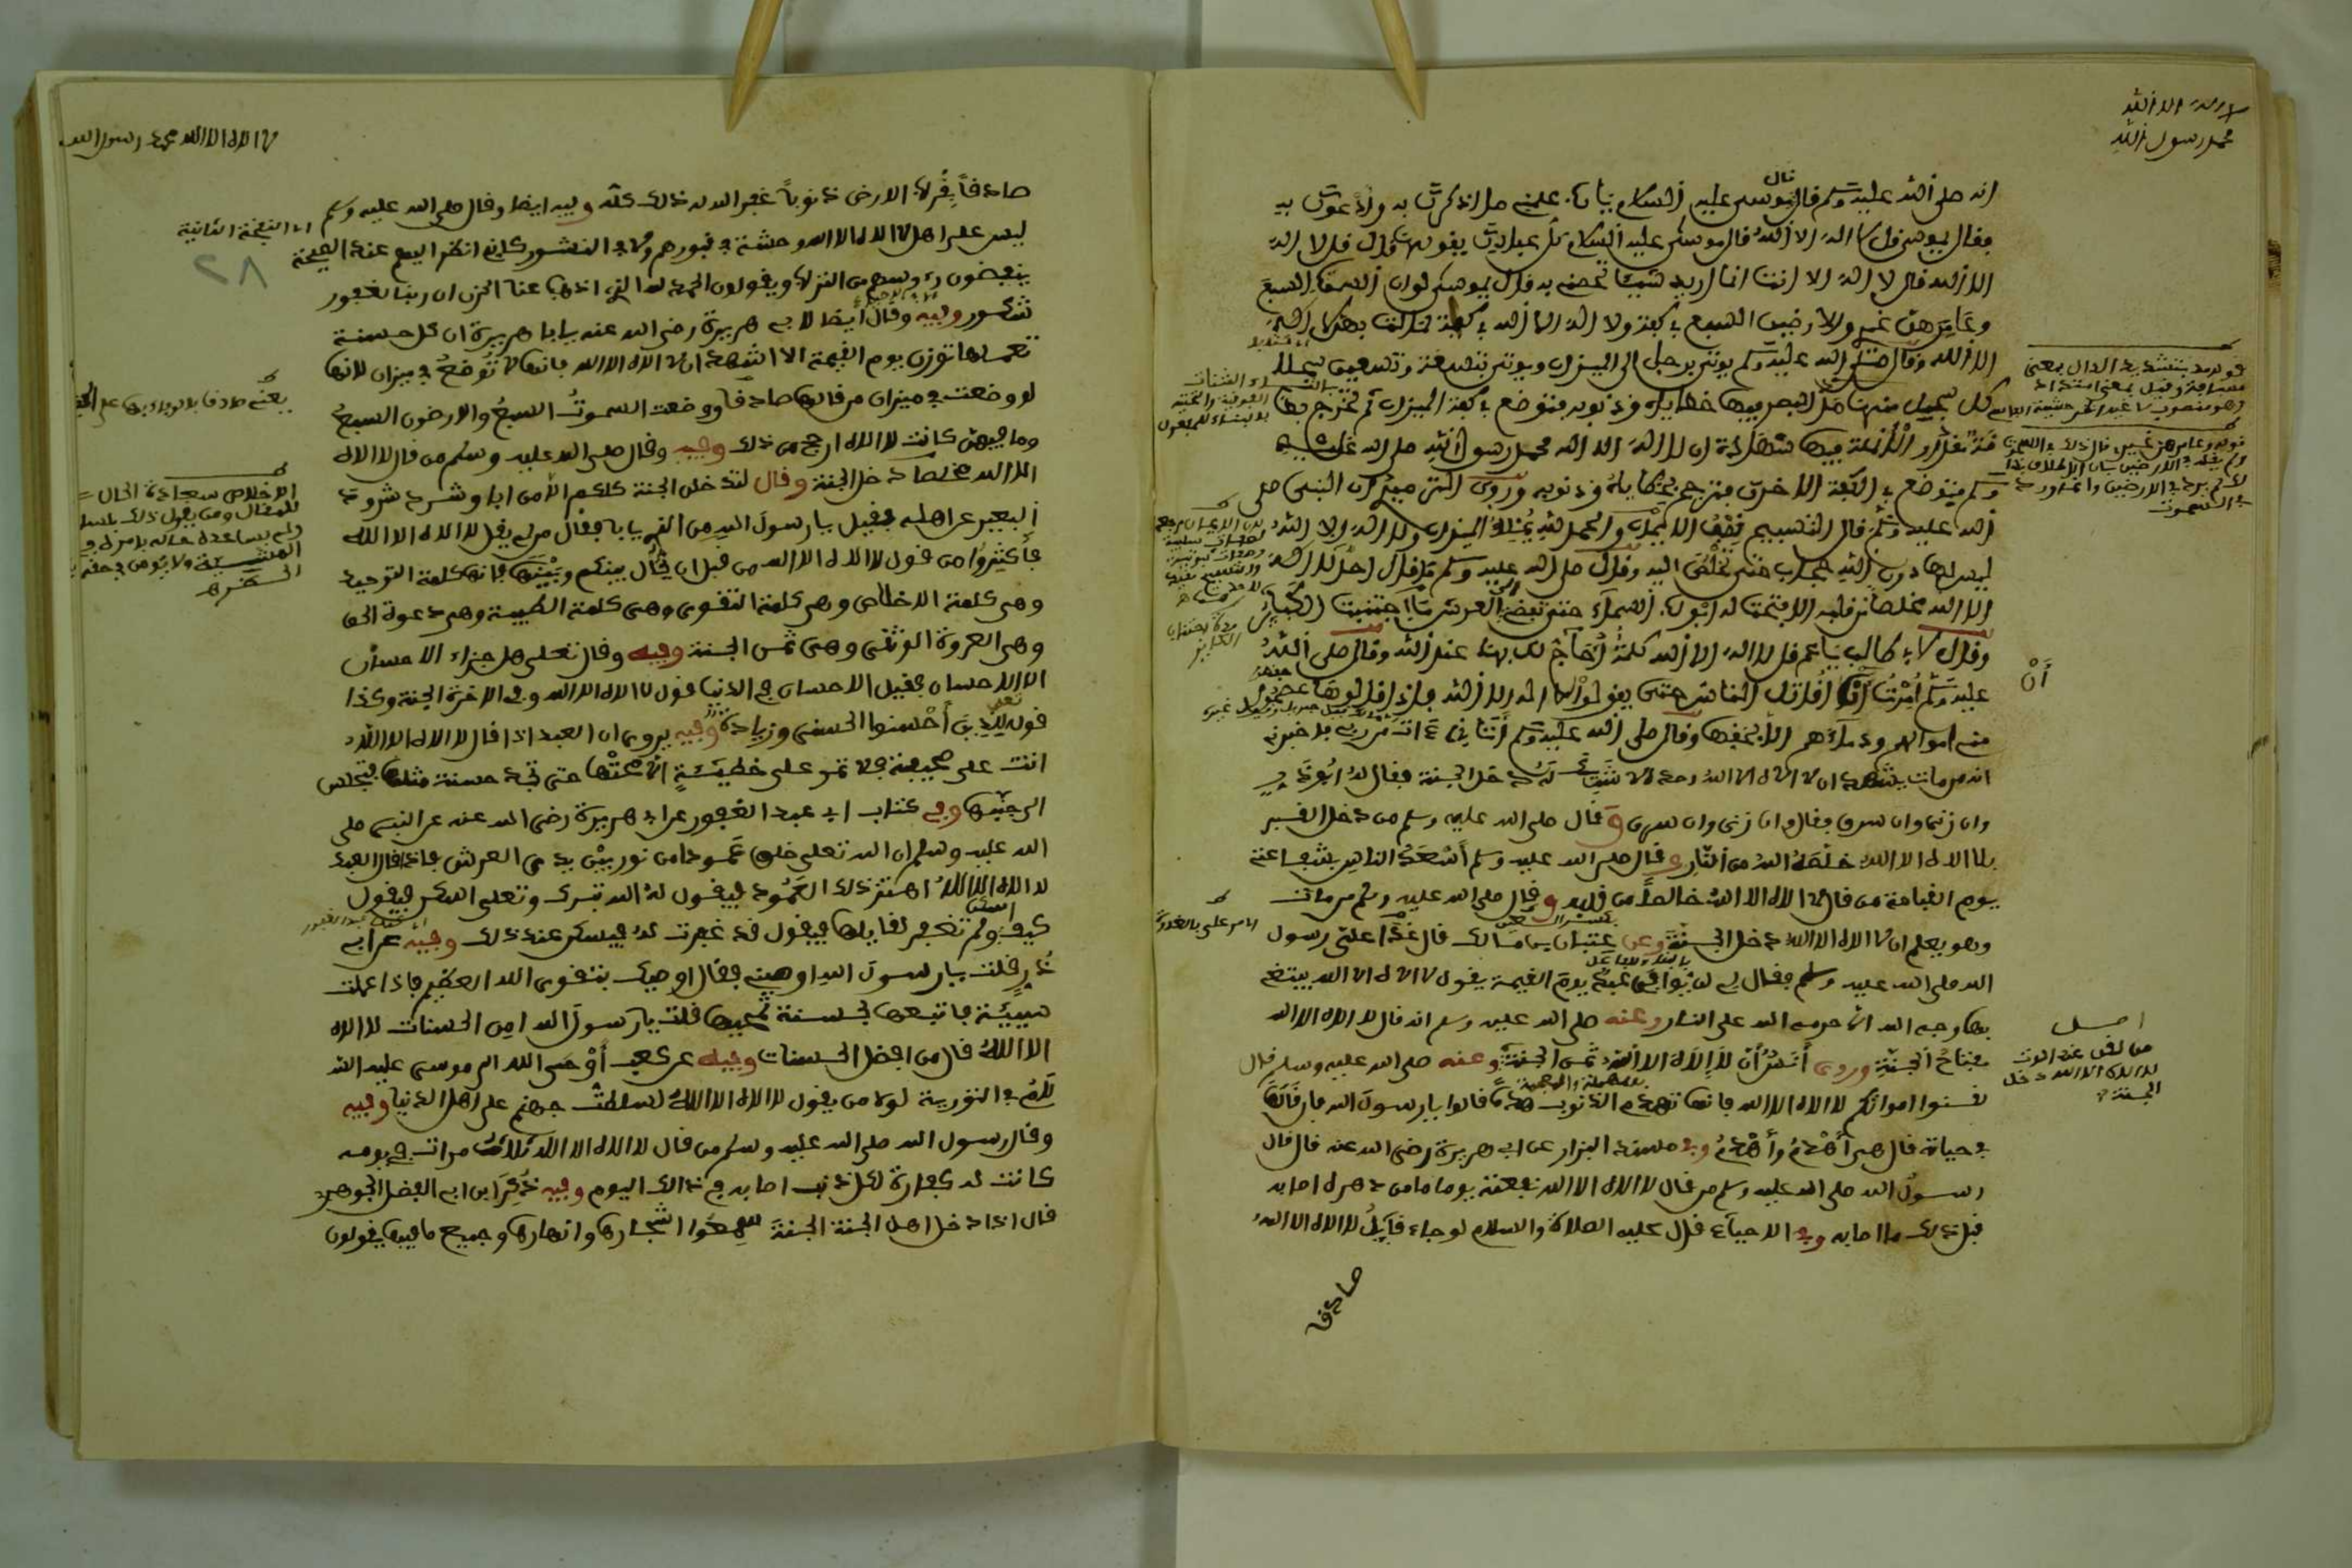 لا اله الا الله
محمد رسول الله
انه صلى الله عليه وسلم قال قال موسى عليه السلام يارب علمنى ما اذكرك به وادعوك به
فقال يموسى قل لا اله الا الله قال موسى عليه السلام كل عبادك يقولون قال قل لا اله
الا الله قال لا اله الا انت انما اريد شيئا تخصنى به قال يموسى لو ان السموات السبع
وعامرهن غيرى والارضين السبع فى كفة ولا اله الا الله فى كفة لمالت بهن لا اله
الا الله وقال صلى الله عليه وسلم يوتى برجل الى الميزان ويوتى بتسعة وتسعين سجلا
كل سجل منها مد البصر فيها خطاياه وذنوبه فتوضع فى كفة الميزان ثم تخرج بطا
قة مقدار الانملة فيها شهادة ان لا اله الا الله محمد رسول الله صلى الله عليه
وسلم فتوضع فى الكفة الاخرى فترجح بخطاياه وذنوبه وروى الترميذى ان النبى صلى
الله عليه وسلم قال التسبيح نصف الايمان والحمد لله يملا الميزان ولا اله الا الله
ليس لها دون الله حجاب حتى تخلص اليه وقال صلى الله عليه وسلم ما قال احد لا اله
الا الله مخلصا من قلبه الا فتحت له ابواب السماء حتى تفضى الى العرش ما اجتنبت الكبائر
وقال لابى طالب ياعم قل لا اله الا الله كلمة احاج لك بها عند الله وقال صلى الله
عليه وسلم امرت ان اقاتل الناس حتى يقولوا لا اله الا الله فاذا قالوها عصموا
منى اموالهم ودماءهم الا بحقها وقال صلى الله عليه وسلم اتانى ءات من ربى فاخبرنى
انه من مات يشهد ان لا اله الا الله وحده لا شريك له دخل الجنة فقال له ابو ذر
وان زنى وان سرق فقال وان زنى وان سرق وقال صلى الله عليه وسلم من دخل القبر
بلا اله الا الله خلصه الله من النار وقال صلى الله عليه وسلم اسعد الناس بشفاعتى
يوم القيامة من قال لا اله الا الله خالصا من قلبه وقال صلى الله عليه وسلم من مات
وهو يعلم ان لا اله الا الله دخل الجنة وعن عتبان بن مالك قال غدا على رسول
الله صلى الله عليه وسلم فقال لى لن يوافى عبد يوم القيمة يقول لا اله الا الله يبتغى
بها وجه الله الا حرمه الله على النار وعنه صلى الله عليه وسلم انه قال لا اله الا الله
مفتاح الجنة وروى انس ان لا اله الا الله ثمن الجنة وعنه صلى الله عليه وسلم قال
لقنوا امواتكم لا اله الا الله فانها تهدم الذنوب هدما قالوا يارسول الله فان قالها
فى حياته قال هى اهدم واهدم وفى مسند البزار عن ابى هريرة رضى الله عنه قال قال
رسول الله صلى الله عليه وسلم من قال لا اله الا الله نفعته يوما من دهره اصابه
قبل ذلك ما اصابه وفى الاحياء قال عليه الصلاة والسلام لو جاء قائل لا اله الا الله
صادقا
لا اله الا الله محمد رسول الله
صادقا بقراب الارض ذنوبا غفر الله له ذلك كله وفيه ايضا وقال صلى الله عليه وسلم
ليس على اهل لا اله الا الله وحشة فى قبورهم ولا فى النشور كانى انظر اليهم عند الصيحة
ينفضون رءوسهم من التراب ويقولون الحمد لله الذى اذهب عنا الحزن ان ربنا لغفور
شكور وفيه وقال ايضا لابى هريرة رضى الله عنه يا ابا هريرة ان كل حسنة
تعملها توزن يوم القيمة الا شهادة ان لا اله الا الله فانها لا توضع فى ميزان لانها
لو وضعت فى ميزان من قالها صادقا ووضعت السموت السبع والارضون السبع
وما فيهن كانت لا اله الا الله ارجح من ذلك وفيه وقال صلى الله عليه وسلم من قال لا اله
الا الله مخلصا دخل الجنة وقال لتدخلن الجنة كلكم الا من ابا وشرد شرود
البعير عن اهله فقيل يا رسول الله من الذى يابا فقال من لم يقل لا اله الا الله
فاكثروا من قول لا اله الا الله من قبل ان يحال بينكم وبينها فانها كلمة التوحيد
وهى كلمة الاخلاص وهى كلمة التقوى وهى كلمة الطيبة وهى دعوة الحق
وهى العروة الوثقى وهى ثمن الجنة وفيه وقال تعلى هل جزاء الاحسان
الا الاحسان فقيل الاحسان فى الدنيا قول لا اله الا الله وفى الاخرة الجنة وكذا
قوله للذين احسنوا الحسنى وزيادة وفيه يروى ان العبد اذا قال لا اله الا الله
اتت على صحيفته فلا تمر على خطيئة الا محتها حتى تجد حسنة مثلها فتجلس
الى جنبها وفى كتاب ابى عبد الغفور عن ابى هريرة رضى الله عنه عن النبى صلى
الله عليه وسلم ان الله تعلى خلق عمودا من نور بين يدى العرش فاذا قال العبد
لا اله الا الله اهتز ذلك العمود فيقول له الله تبرك وتعلى اسكن فيقول
كيف اسكن ولم تغفر لقايلها فيقول قد غفرت له فيسكن عند ذلك وفيه عن ابى
ذر قلت يارسول الله اوصينى فقال اوصيك بتقوى الله العظيم فاذا عملت
سيئة فاتبعها بحسنة تمحيها قلت يارسول الله امن الحسنات لا اله
الا الله قال من افضل الحسنات وفيه عن كعب اوحى الله الى موسى عليه الس
لام فى التورية لولا من يقول لا اله الا الله لسلطت جهنم على اهل الدنيا وفيه
وقال رسول الله صلى الله عليه وسلم من قال لا اله الا الله ثلاث مرات فى يومه
كانت له كفارة لكل ذنب اصابه فى ذالك اليوم وفيه ذكر ابن ابى الفضل الجوهرى
قال اذا دخل اهل الجنة الجنة سمعوا اشجارها وانهارها وجميع ما فيها يقولون
اى النفخة الثانية
٢٨
الاخلاص مساعدة الحال
للمقال
اصل
من لقن عند الموت
لا اله الا الله دخل
الجنة